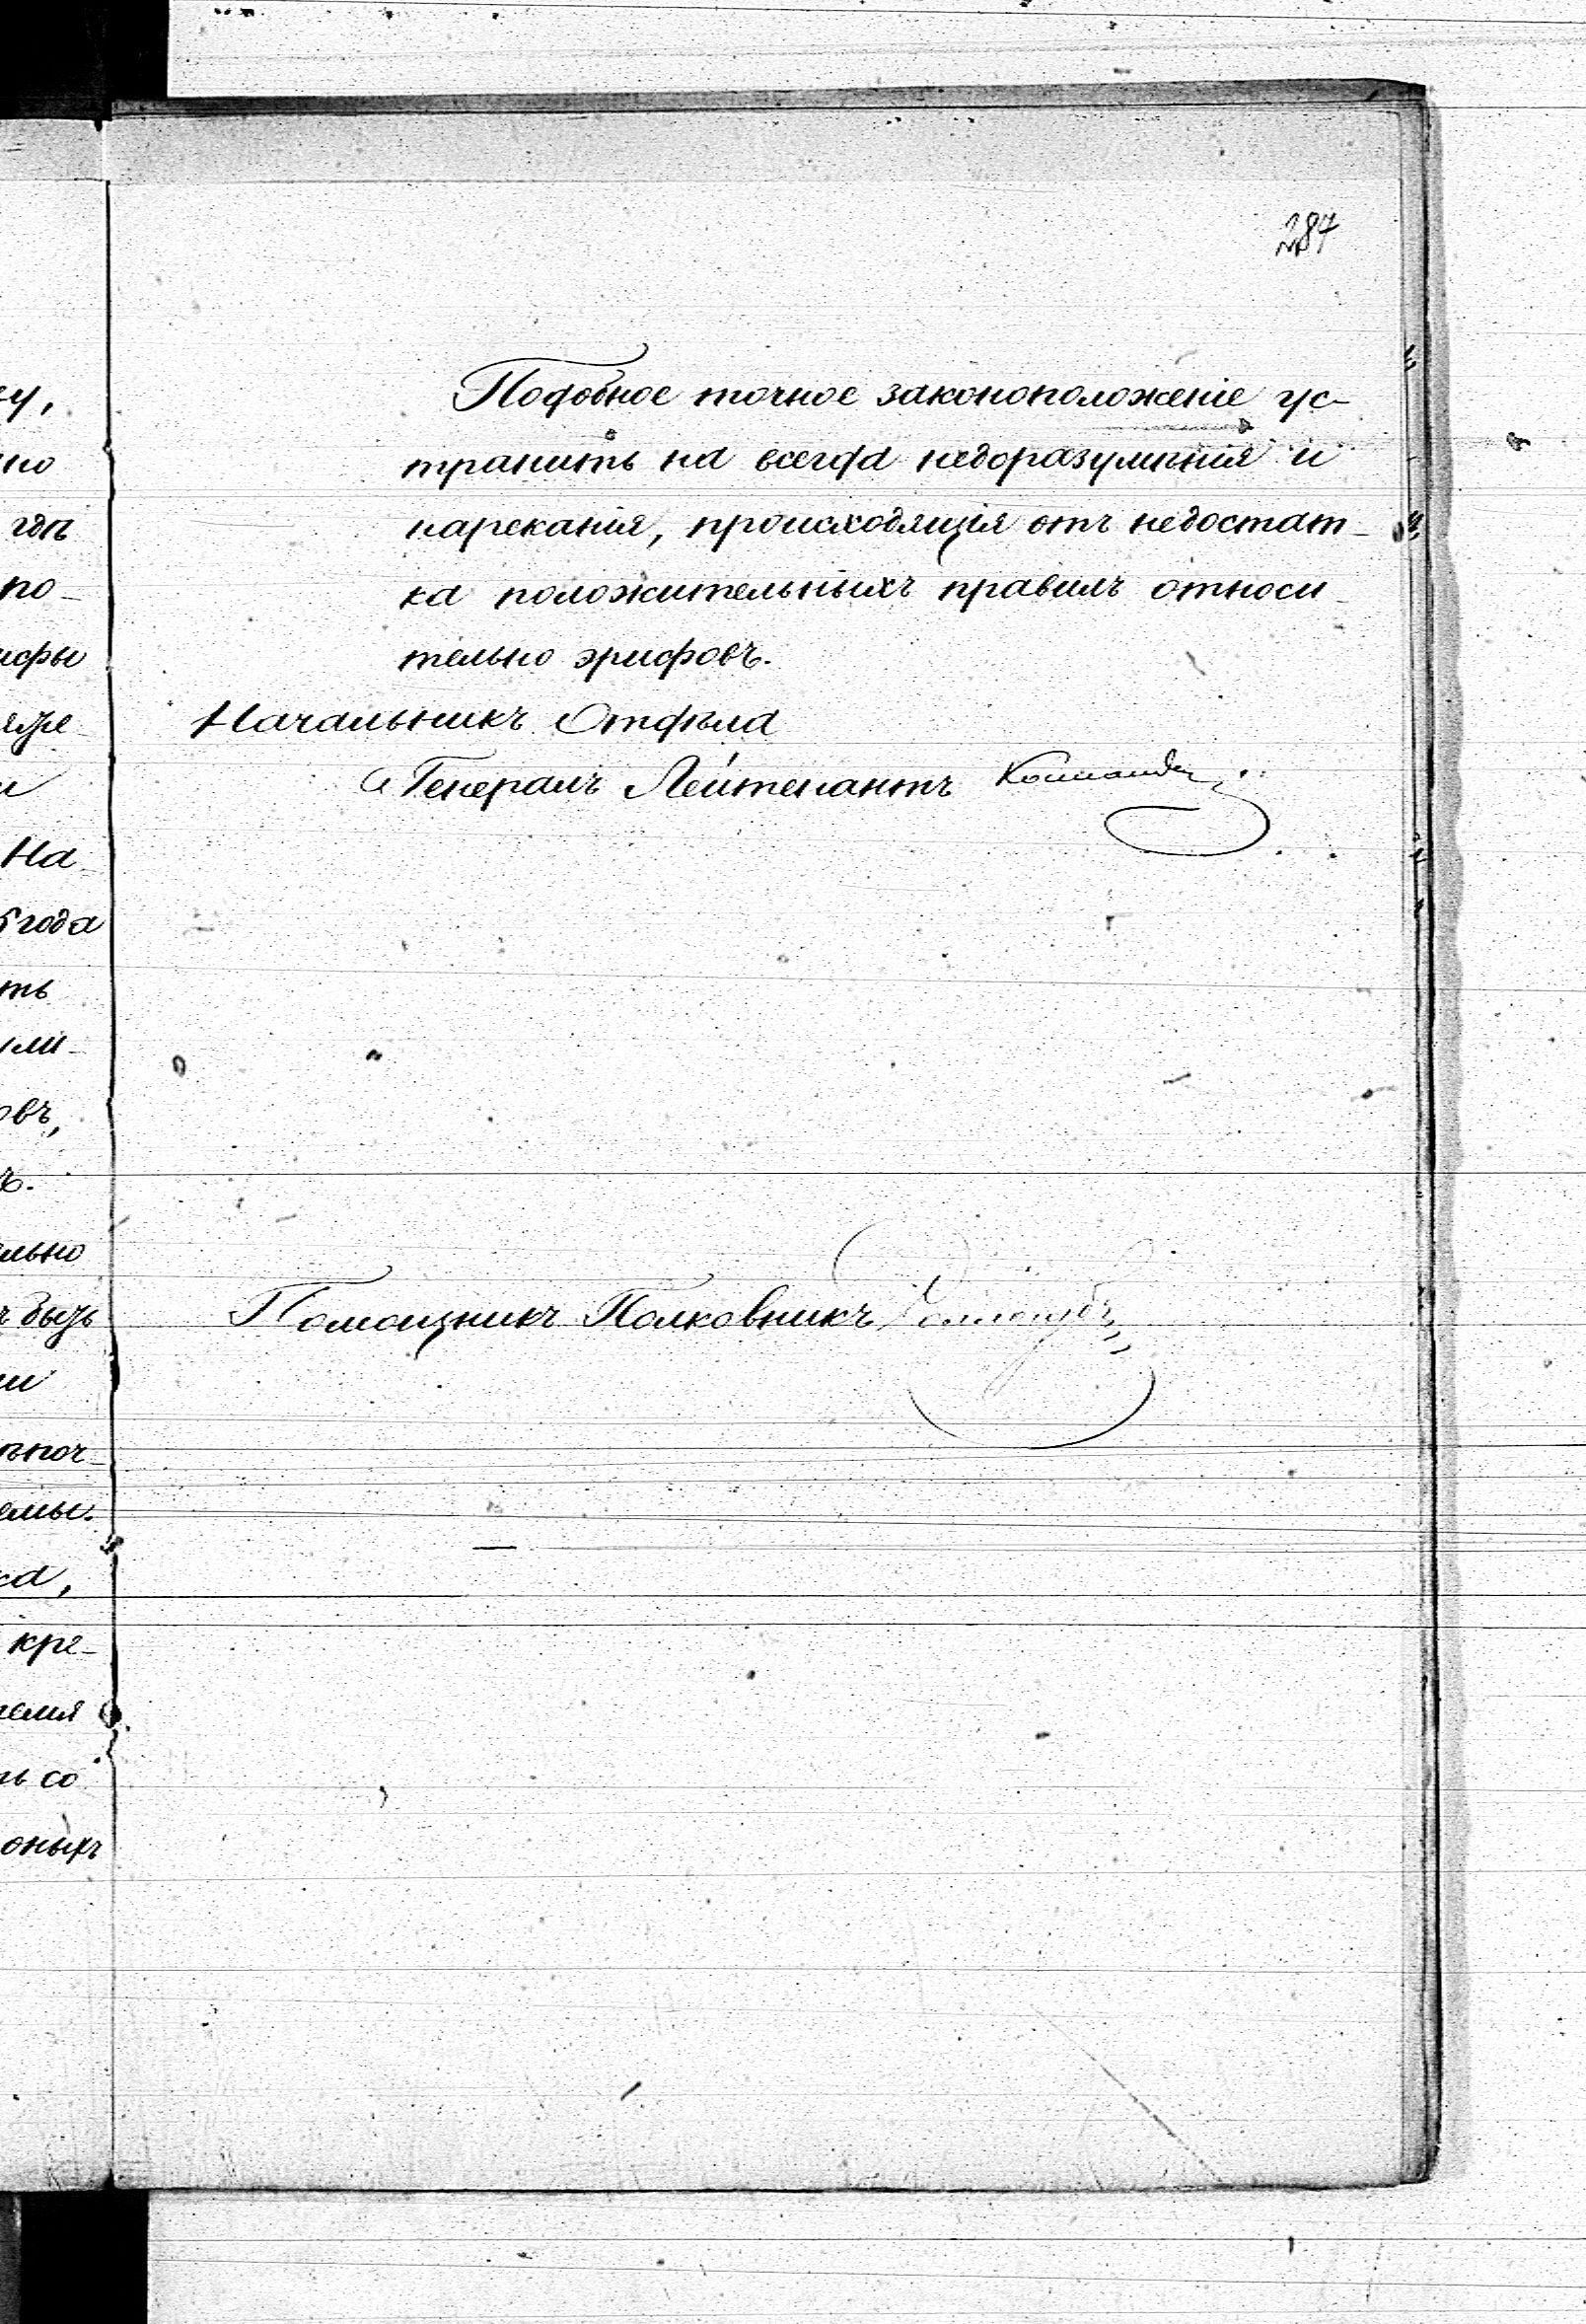 287
Подобное точное законоположеніе ус-
транитъ на всегда недоразумѣнія и
нареканія, происходящія отъ недостат-
ка положительныхъ правилъ относи-
тельно эрифовъ.
Начальникъ Отдѣла
Генералъ Лейтенантъ
Помощникъ Полковникъ
у,
но
гдѣ
по-
ифы
На-
года
ть
ли-
овъ,
ъ.
льно
ка,
кре-
со
оныхъ